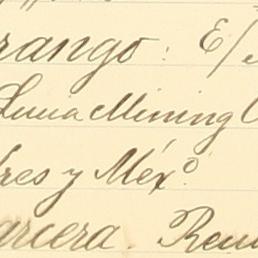 rango: E/
Lucia Mining C
res y Méx°.
arcera. Reu